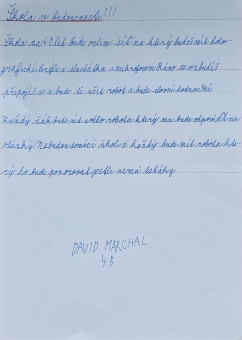 Škola v budoucnosti!!!
Škola za 60 let bude online síť na který budeš mít holo-
grafické brýle a sluchátka s mikrofonem Ráno se vzbudíš
připojíš se a bude tě učit robot a bude slovní hodnocení
Každý žák bude mít svého robota který mu bude odpovídat na
otázky Nebudou domácí úkoly a každý bude mít robota kte-
rý ho bude pozorovat jestli nemá taháky.
DAVID MARCHAL
4.B